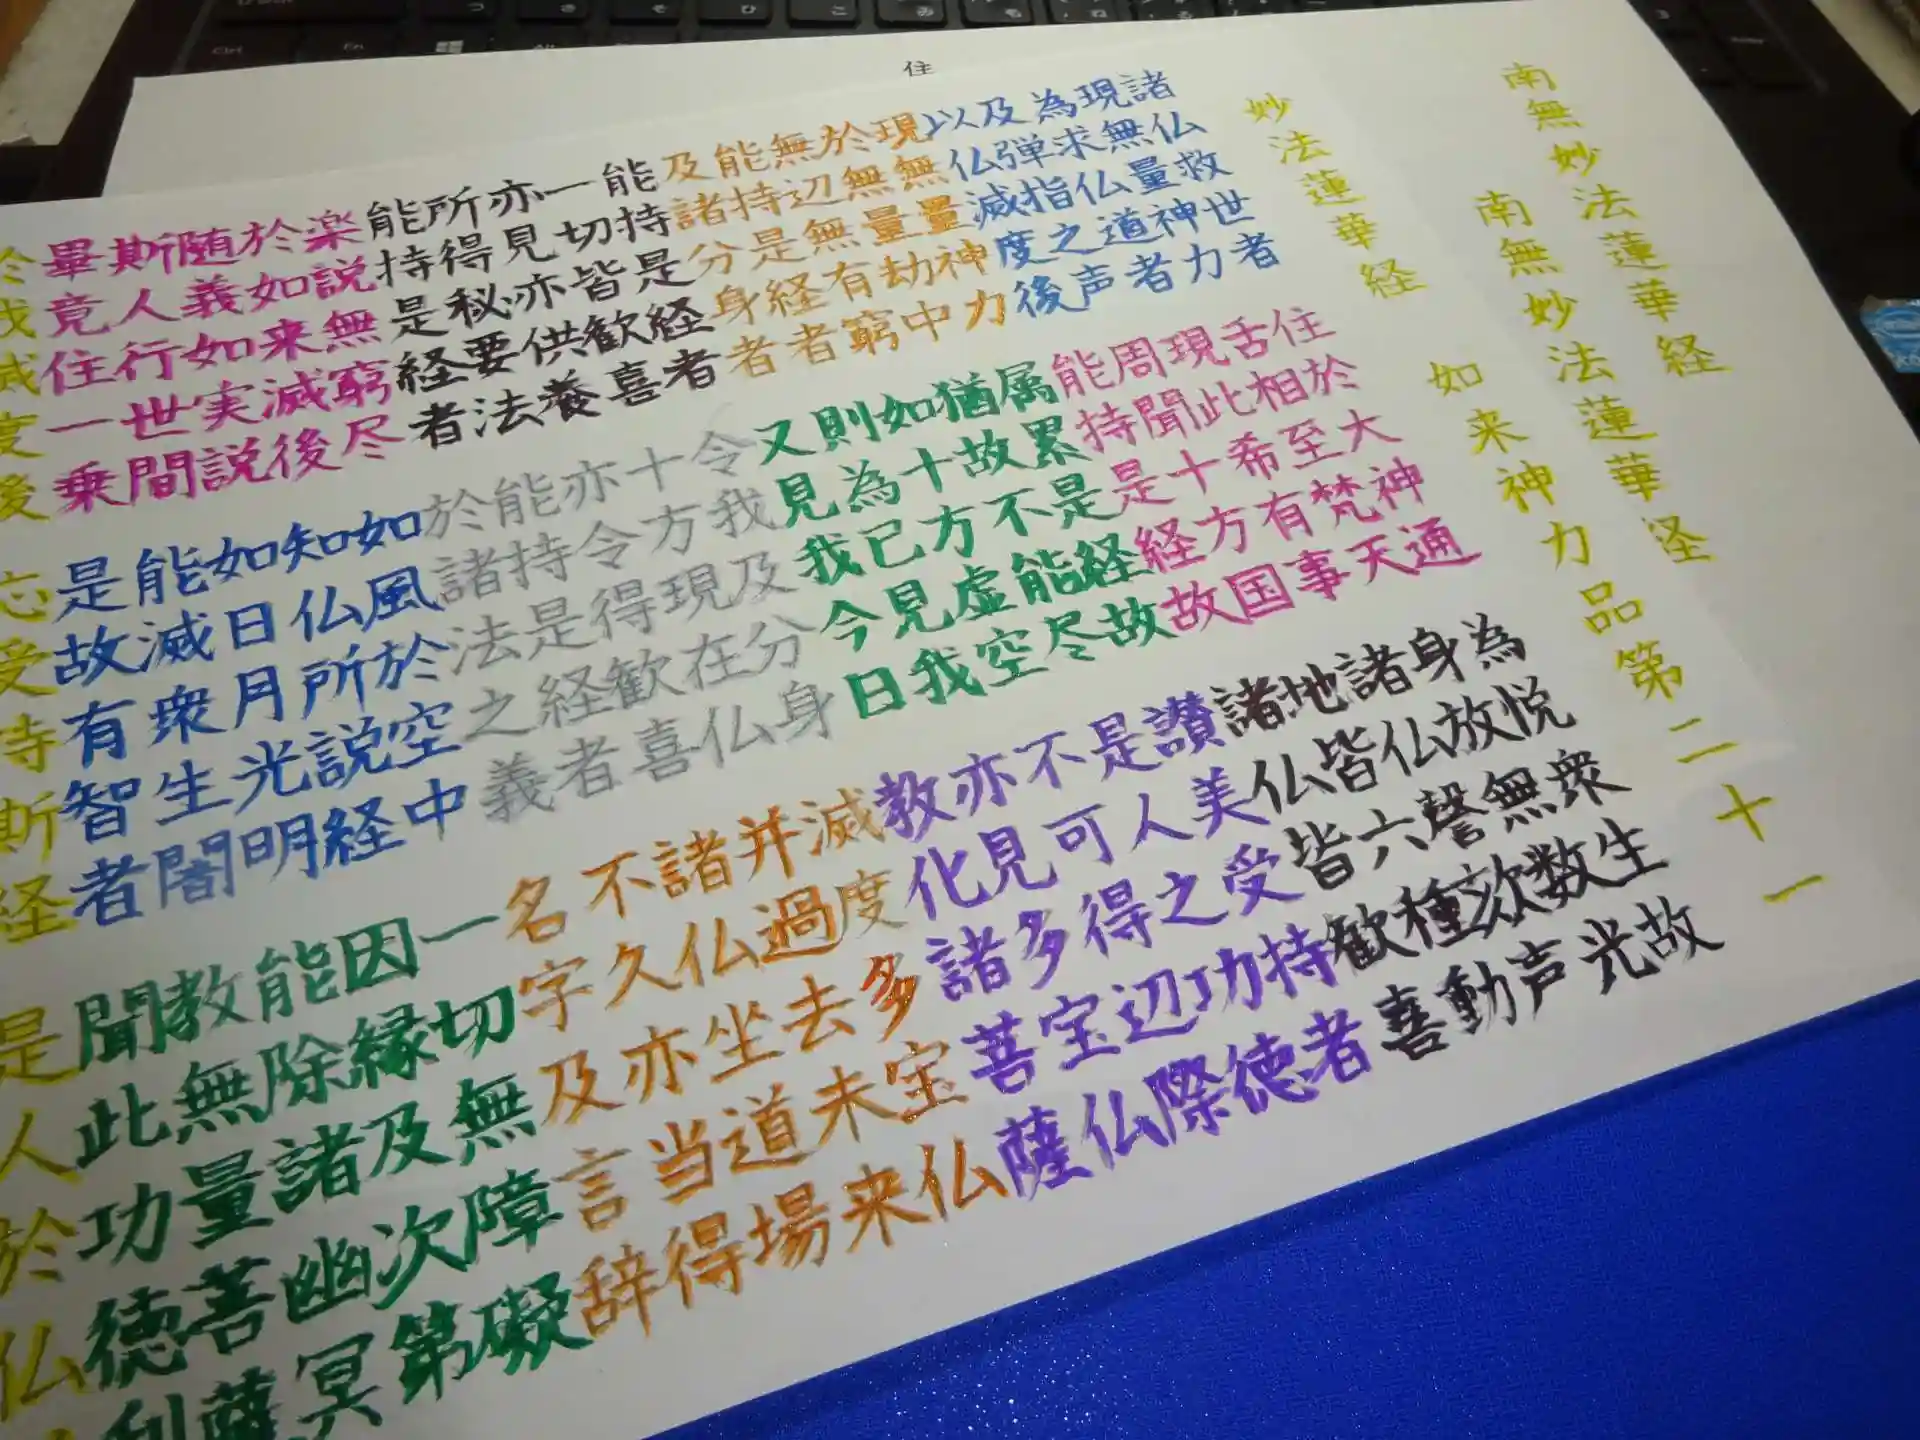 住
南無妙法蓮華経
南無妙法蓮華経
妙法蓮華経 如来神力品第二十一
諸仏救世者 住於大神通 為悦衆生故
現無量神力 舌相至梵天 身放無数光
為求仏道者 現此希有事 諸仏謦欬声
及弾指之声 周聞十方国 地皆六種動
以仏滅度後 能持是経故 諸仏皆歓喜
現無量神力 属累是経故 讃美受持者
於無量劫中 猶故不能尽 是人之功徳
無辺無有窮 如十方虚空 不可得辺際
能持是経者 則為已見我 亦見多宝仏
及諸分身者 又見我今日 教化諸菩薩
能持是経者 令我及分身 滅度多宝仏
一切皆歓喜 十方現在仏 并過去未来
亦見亦供養 亦令得歓喜 諸仏坐道場
所得秘要法 能持是経者 不久亦当得
能持是経者 於諸法之義 名字及言辞
楽説無窮尽 如風於空中 一切無障礙
於如来滅後 知仏所説経 因縁及次第
随義如実説 如日月光明 能除諸幽冥
斯人行世間 能滅衆生闇 教無量菩薩
畢竟住一乗 是故有智者 聞此功徳利
於我滅度後 応受持斯経 是人於仏